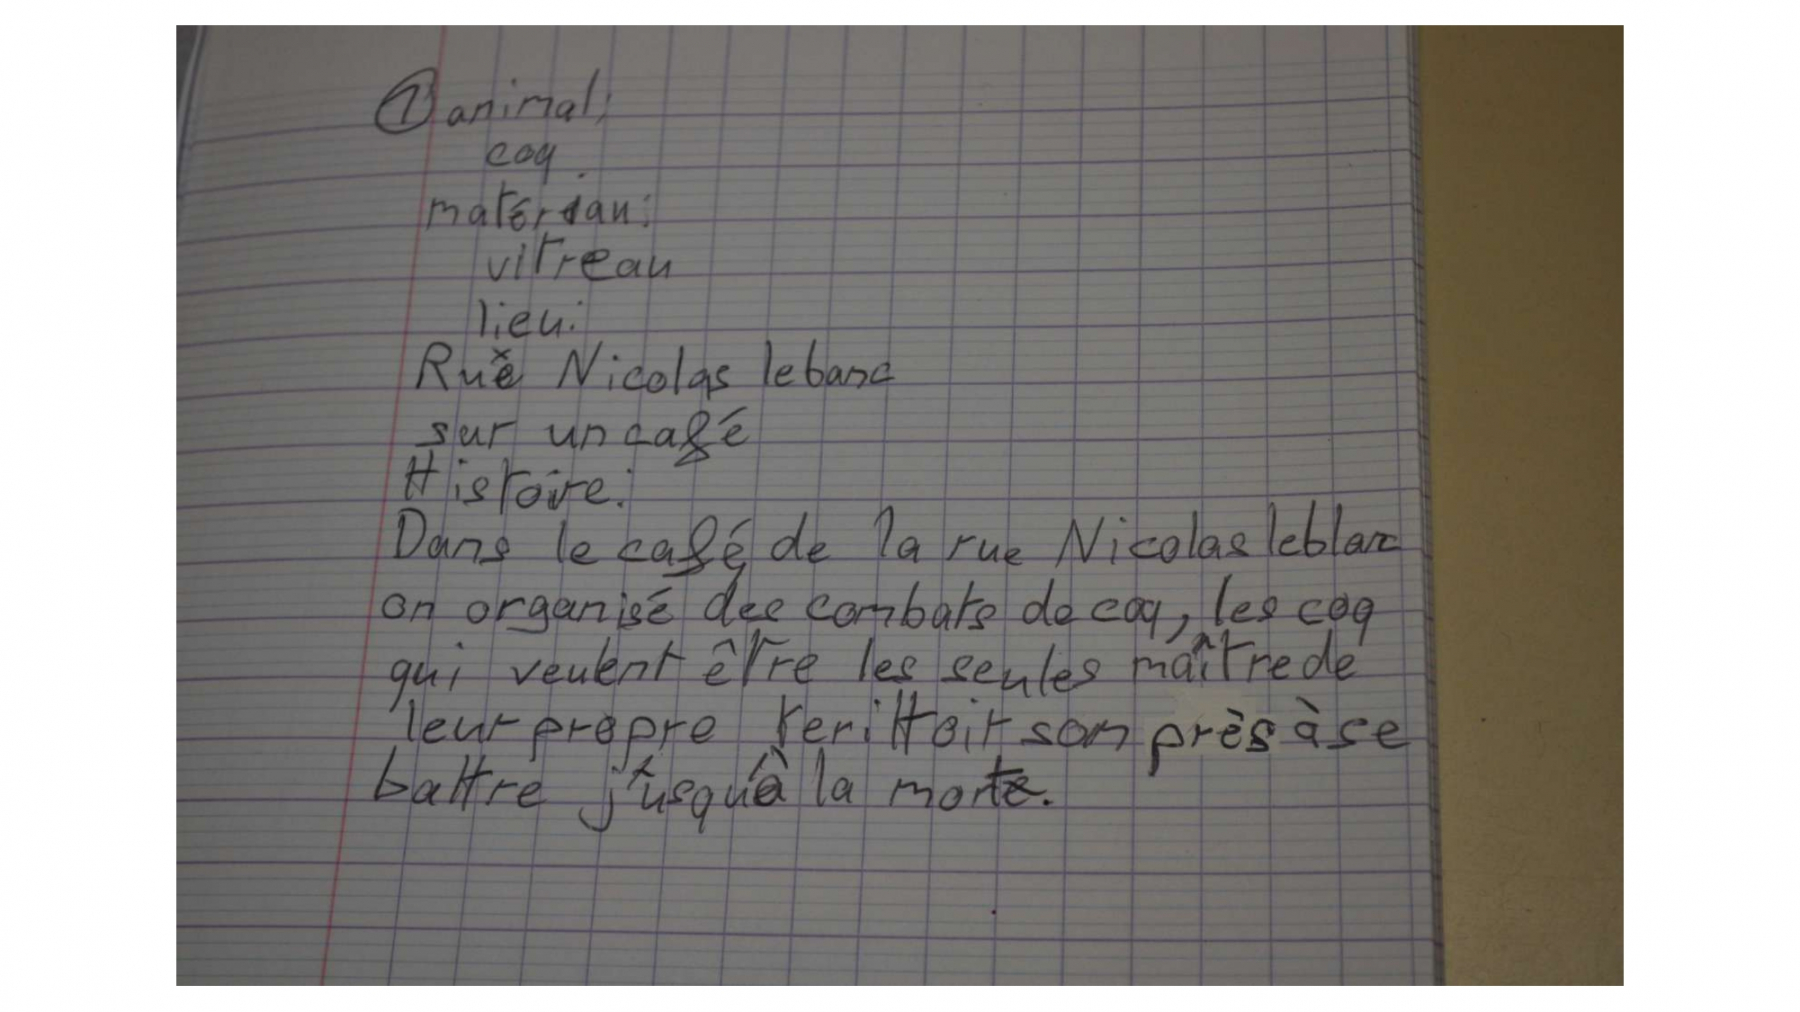 ① animal:
coq
matériau:
vitreau
lieu:
Rue Nicolas lebanc
sur un café
Histoire:
Dans le café de la rue Nicolas leblanc
on organisé des combats de coq, les coq
qui veulent être les seules maître de
leur propre terittoir son près à se
battre j'usqu'à la morte.